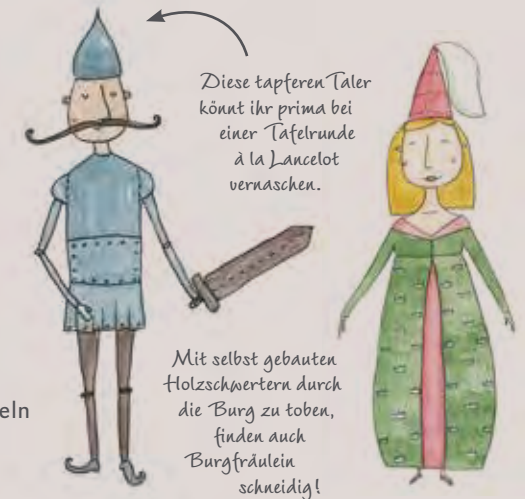 Diese tapferen Taler
könnt ihr prima bei
einer Tafelrunde
à la Lancelot
vernaschen.
Mit selbst gebauten
Holzschwertern durch
die Burg zu toben,
finden auch
Burgfräulein
schneidig!
eln